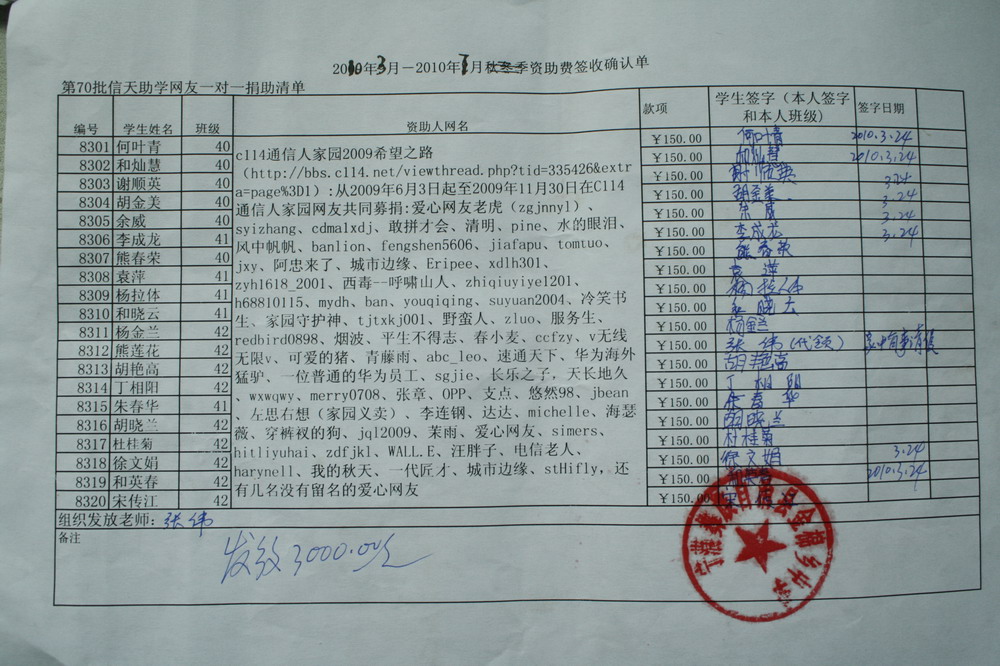 2010年3月－2010年7月秋冬季资助费签收确认单
第70批信天助学网友一对一捐助清单
编号 学生姓名 班级 资助人网名 款项 学生签字（本人签字和本人班级） 签字日期
8301 何叶青 40 ￥150.00 何叶青 2010.3.24
8302 和灿慧 40 ￥150.00 和灿慧 2010.3.24
8303 谢顺英 40 ￥150.00 谢顺英 3.24
8304 胡金美 40 ￥150.00 胡金美 3.24
8305 余威 40 ￥150.00 余威 3.24
8306 李成龙 41 ￥150.00 李成龙 3.24
8307 熊春荣 40 ￥150.00 熊春荣
8308 袁萍 41 ￥150.00 袁萍
8309 杨拉体 41 ￥150.00 杨拉体
8310 和晓云 41 ￥150.00 和晓云
8311 杨金兰 42 ￥150.00 杨金兰
8312 熊莲花 42 ￥150.00 张伟（代领） 家中有事请假
8313 胡艳高 42 ￥150.00 胡艳高
8314 丁相阳 42 ￥150.00 丁相阳
8315 朱春华 41 ￥150.00 朱春华
8316 胡晓兰 42 ￥150.00 胡晓兰
8317 杜桂菊 42 ￥150.00 杜桂菊
8318 徐文娟 42 ￥150.00 徐文娟 3.24
8319 和英春 42 ￥150.00 和英春 2010.3.24
8320 宋传江 42 ￥150.00
c114通信人家园2009希望之路
（http://bbs.c114.net/viewthread.php?tid=335426&extr
a=page%3D1）:从2009年6月3日起至2009年11月30日在C114
通信人家园网友共同募捐:爱心网友老虎（zgjnnyl）、
syizhang、cdma1xdj、敢拼才会、清明、pine、水的眼泪、
风中帆帆、banlion、fengshen5606、jiafapu、tomtuo、
jxy、阿忠来了、城市边缘、Eripee、xdlh301、
zyh1618_2001、西毒--呼啸山人、zhiqiuyiye1201、
h68810115、mydh、ban、youqiqing、suyuan2004、冷笑书
生、家园守护神、tjtxkj001、野蛮人、zluo、服务生、
redbird0898、烟波、平生不得志、春小麦、ccfzy、v无线
无限v、可爱的猪、青藤雨、abc_leo、速通天下、华为海外
猛驴、一位普通的华为员工、sgjie、长乐之子，天长地久
、wxwqwy、merry0708、张章、OPP、支点、悠然98、jbean
、左思右想（家园义卖）、李连钢、达达、michelle、海瑟
薇、穿裤衩的狗、jql2009、茉雨、爱心网友、simers、
hitliyuhai、zdfjkl、WALL.E、汪胖子、电信老人、
harynell、我的秋天、一代匠才、城市边缘、stHifly，还
有几名没有留名的爱心网友
组织发放老师：张伟
备注
发放3000.00元